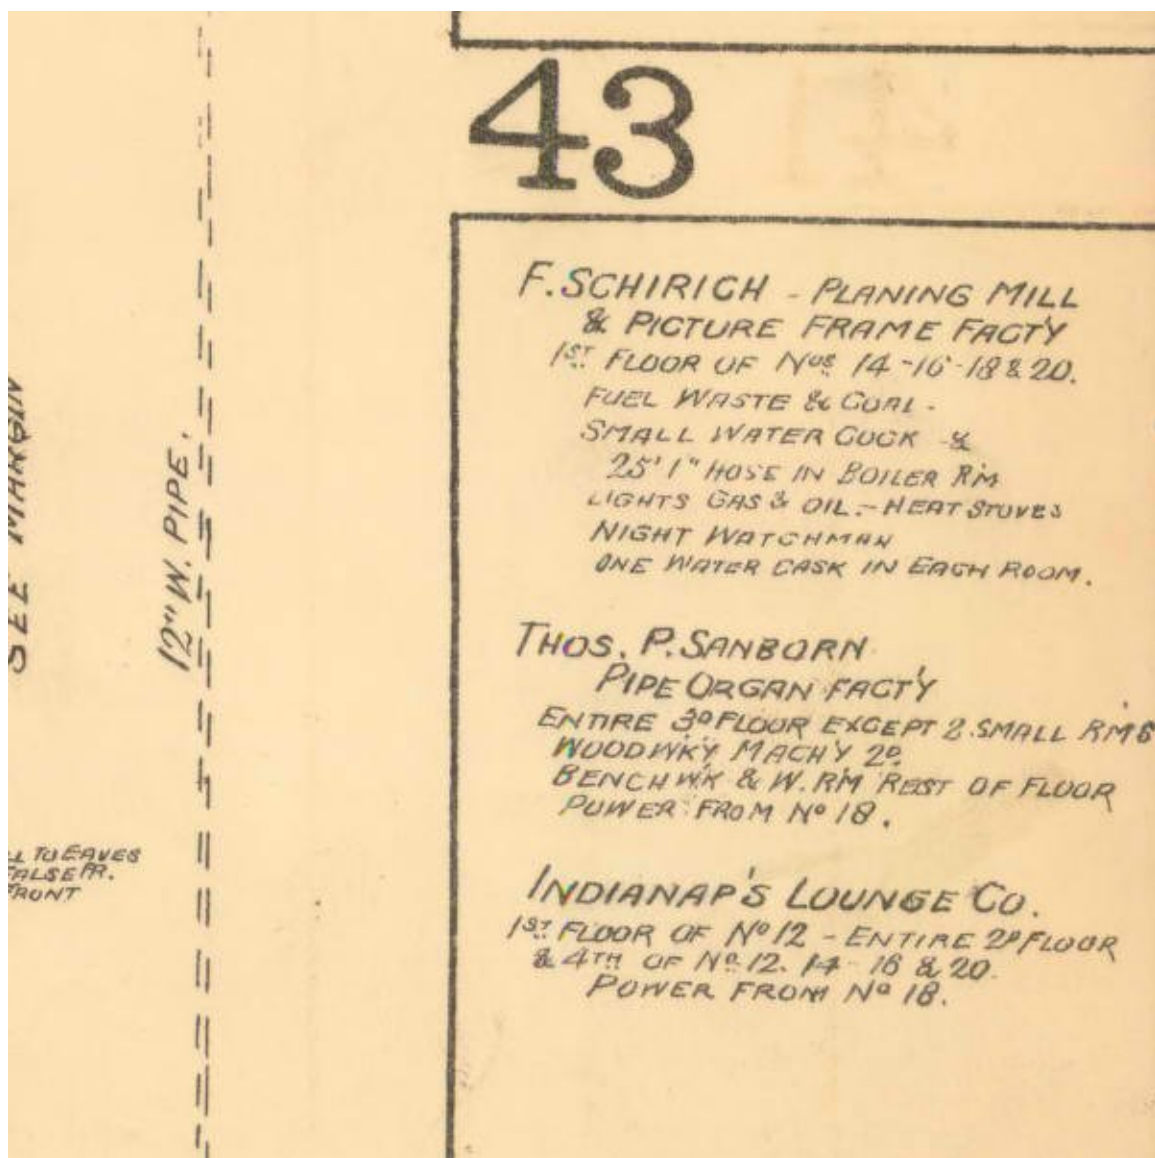 43
F. SCHIRICH - PLANING MILL
& PICTURE FRAME FACT'Y
1ST FLOOR OF NOS 14-16-18 & 20.
FUEL WASTE & COAL.
SMALL WATER COCK &
25' 1" HOSE IN BOILER R'M
LIGHTS GAS & OIL.-HEAT STOVES
NIGHT WATCHMAN
ONE WATER CASK IN EACH ROOM.
THOS. P. SANBORN
PIPE ORGAN FACT'Y
ENTIRE 3D FLOOR EXCEPT 2 SMALL R'MS
WOODWK'Y MACH'Y 2D
BENCH W'K & W. R'M REST OF FLOOR
POWER FROM NO 18.
INDIANAP'S LOUNGE CO.
1ST FLOOR OF NO 12 - ENTIRE 2D FLOOR
& 4TH OF NO 12. 14-16 & 20.
POWER FROM NO 18.
12" W. PIPE.
SEE MARGIN
TO EAVES
FALSE FR.
FRONT